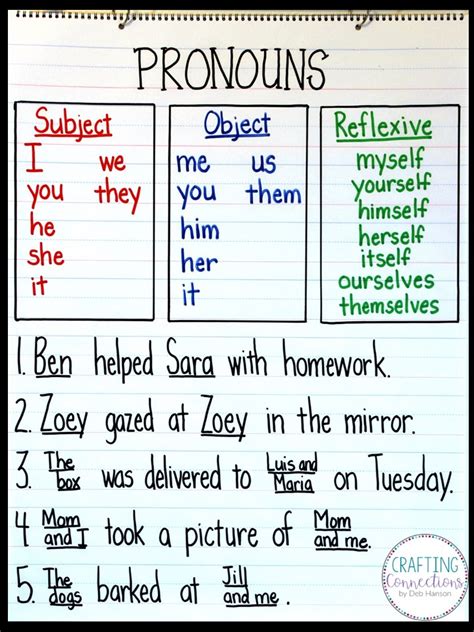 PRONOUNS
Subject
I we
you they
he
she
it
Object
me us
you them
him
her
it
Reflexive
myself
yourself
himself
herself
itself
ourselves
themselves
1. Ben helped Sara with homework.
2. Zoey gazed at Zoey in the mirror.
3. The box was delivered to Luis and Maria on Tuesday.
4 Mom and I took a picture of Mom and me.
5. The dogs barked at Jill and me.
CRAFTING
Connections
by Deb Hanson